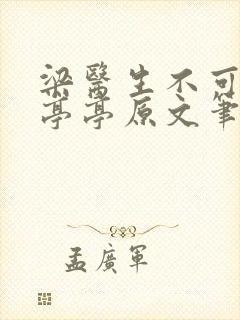 梁醫生不可
亭亭原文筆
孟廣軍